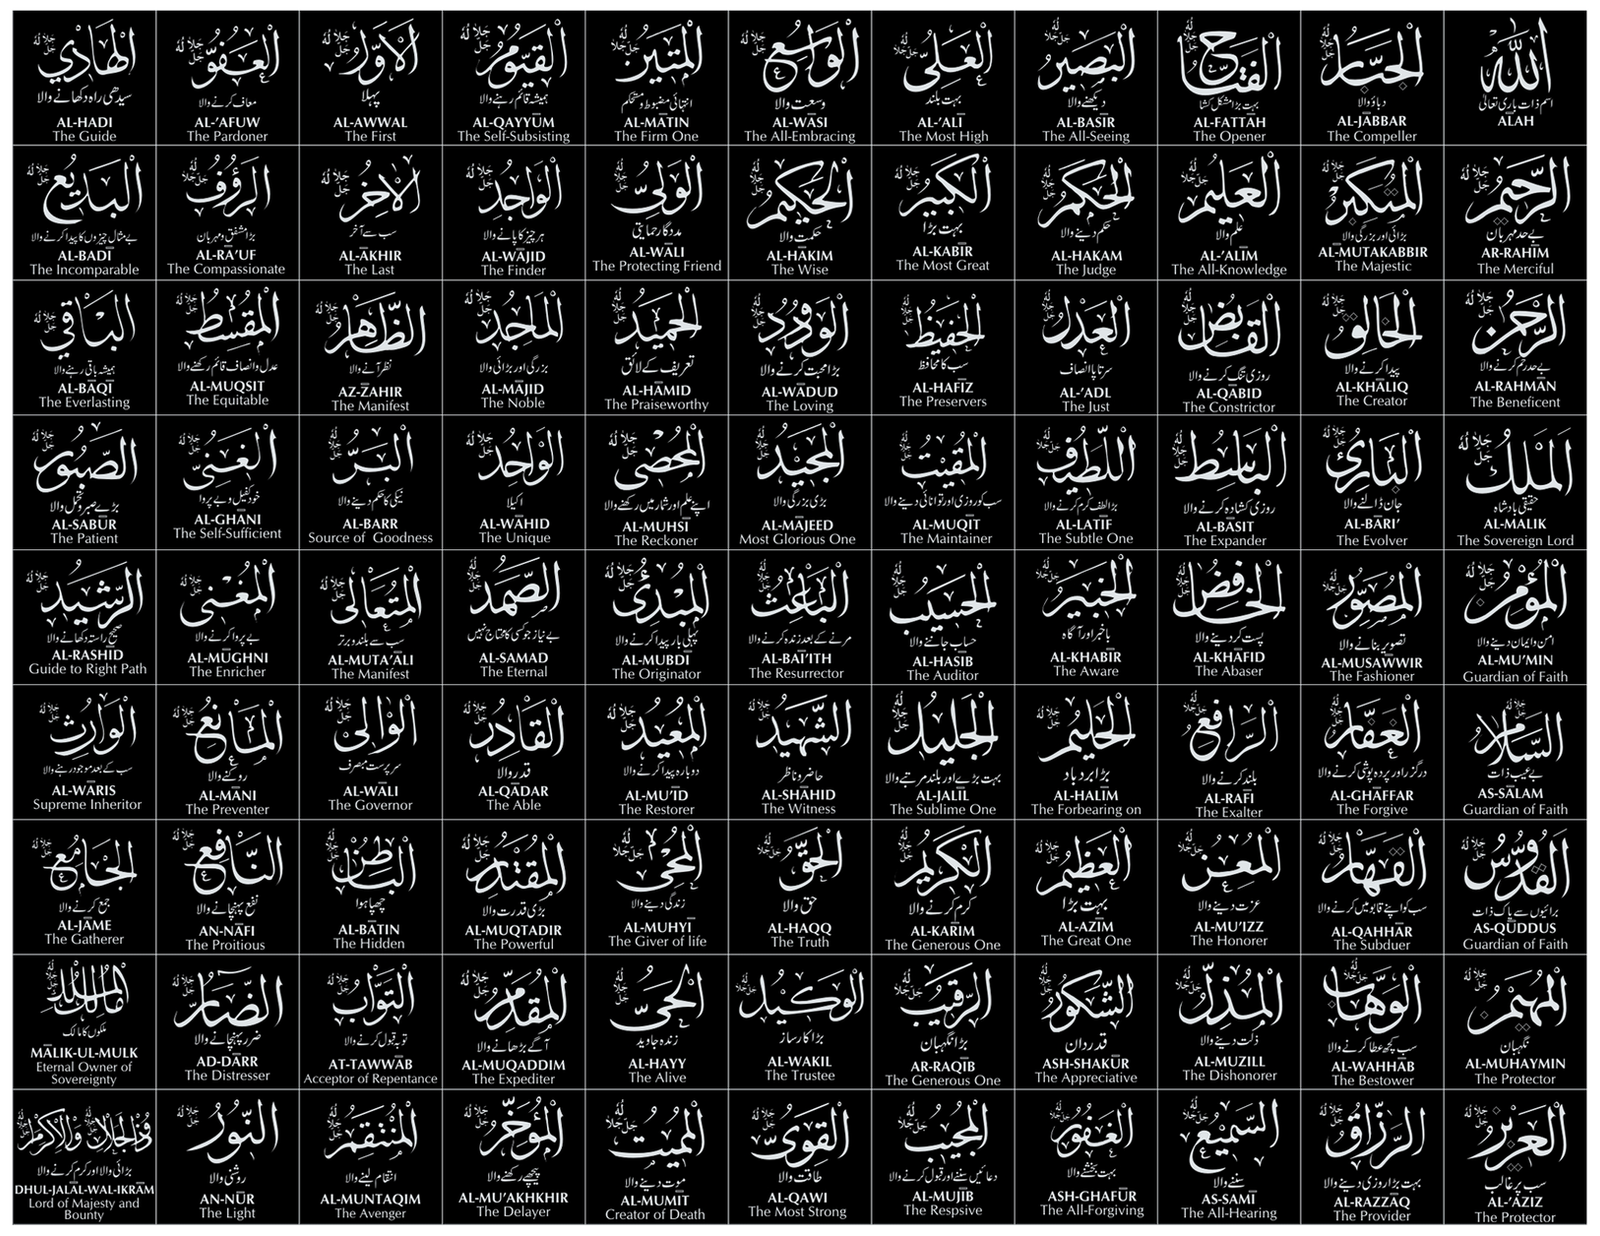 الْهَادِي جل جلاله
سیدھی راہ دکھانے والا
AL-HADI
The Guide
الْعَفُوُّ جل جلاله
معاف کرنے والا
AL-’AFUW
The Pardoner
الْأَوَّلُ جل جلاله
پہلا
AL-AWWAL
The First
الْقَيُّومُ جل جلاله
ہمیشہ قائم رہنے والا
AL-QAYYŪM
The Self-Subsisting
الْمَتِينُ جل جلاله
انتہائی مضبوط و مستحکم
AL-MĀTIN
The Firm One
الْوَاسِعُ جل جلاله
وسعت والا
AL-WĀSI
The All-Embracing
الْعَلِيُّ جل جلاله
بہت بلند
AL-’ALĪ
The Most High
الْبَصِيرُ جل جلاله
دیکھنے والا
AL-BASĪR
The All-Seeing
الْفَتَّاحُ جل جلاله
بہت بڑا مشکل کشا
AL-FATTĀH
The Opener
الْجَبَّارُ جل جلاله
دباؤ والا
AL-JĀBBAR
The Compeller
اللَّهُ
اسم ذات باری تعالیٰ
ĀLAH
الْبَدِيعُ جل جلاله
بے مثال چیزوں کا پیدا کرنے والا
AL-BADĪ
The Incomparable
الرَّؤُفُ جل جلاله
بڑا مشفق و مہربان
AL-RA’UF
The Compassionate
الْآخِرُ جل جلاله
سب سے آخر
AL-ĀKHIR
The Last
الْوَاجِدُ جل جلاله
ہر چیز کا پانے والا
AL-WĀJID
The Finder
الْوَلِيُّ جل جلاله
مددگار حمایتی
AL-WĀLI
The Protecting Friend
الْحَكِيمُ جل جلاله
حکمت والا
AL-HĀKIM
The Wise
الْكَبِيرُ جل جلاله
بہت بڑا
AL-KABĪR
The Most Great
الْحَكَمُ جل جلاله
حکم دینے والا
AL-HAKAM
The Judge
الْعَلِيمُ جل جلاله
علم والا
AL-’ALĪM
The All-Knowledge
الْمُتَكَبِّرُ جل جلاله
بڑائی اور بزرگی والا
AL-MUTAKABBIR
The Majestic
الرَّحِيمُ
بے حد مہربان
AR-RAHĪM
The Merciful
الْبَاقِي جل جلاله
ہمیشہ باقی رہنے والا
AL-BĀQĪ
The Everlasting
الْمُقْسِطُ جل جلاله
عدل و انصاف قائم رکھنے والا
AL-MUQSIT
The Equitable
الظَّاهِرُ جل جلاله
نظر آنے والا
AZ-ZĀHIR
The Manifest
الْمَاجِدُ جل جلاله
بزرگی اور بڑائی والا
AL-MĀJID
The Noble
الْحَمِيدُ جل جلاله
تعریف کے لائق
AL-HĀMID
The Praiseworthy
الْوَدُودُ جل جلاله
بڑا محبت کرنے والا
AL-WĀDUD
The Loving
الْحَفِيظُ جل جلاله
سب کا محافظ
AL-HAFĪZ
The Preservers
الْعَدْلُ جل جلاله
سرتاپا انصاف
AL-’ADL
The Just
الْقَابِضُ جل جلاله
روزی تنگ کرنے والا
AL-QĀBID
The Constrictor
الْخَالِقُ جل جلاله
پیدا کرنے والا
AL-KHĀLIQ
The Creator
الرَّحْمٰنُ جل جلاله
بے حد رحم کرنے والا
AL-RAHMĀN
The Beneficent
الصَّبُورُ جل جلاله
بڑے صبر و تحمل والا
AL-SABŪR
The Patient
الْغَنِيُّ جل جلاله
خود کفیل و بے پروا
AL-GHĀNI
The Self-Sufficient
الْبَرُّ جل جلاله
نیکی کا حکم دینے والا
AL-BARR
Source of Goodness
الْوَاحِدُ جل جلاله
اکیلا
AL-WĀHID
The Unique
الْمُحْصِي جل جلاله
اپنے علم اور شمار میں رکھنے والا
AL-MUHSĪ
The Reckoner
الْمَجِيدُ جل جلاله
بڑی بزرگی والا
AL-MĀJEED
Most Glorious One
الْمُقِيتُ جل جلاله
سب کو روزی اور توانائی دینے والا
AL-MUQĪT
The Maintainer
اللَّطِيفُ جل جلاله
بڑا لطف کرم کرنے والا
AL-LATĪF
The Subtle One
الْبَاسِطُ جل جلاله
روزی کشادہ کرنے والا
AL-BĀSIT
The Expander
الْبَارِئُ جل جلاله
جان ڈالنے والا
AL-BĀRI’
The Evolver
الْمَلِكُ جل جلاله
حقیقی بادشاہ
AL-MALIK
The Sovereign Lord
الرَّشِيدُ جل جلاله
صحیح راستہ دکھانے والا
AL-RASHĪD
Guide to Right Path
الْمُغْنِي جل جلاله
بے پروا کرنے والا
AL-MŪGHNI
The Enricher
الْمُتَعَالِي جل جلاله
سب سے بلند و برتر
AL-MUTA’ĀLI
The Manifest
الصَّمَدُ جل جلاله
بے نیاز جو کسی کا محتاج نہیں
AL-SAMAD
The Eternal
الْمُبْدِئُ جل جلاله
پہلی بار پیدا کرنے والا
AL-MUBDĪ
The Originator
الْبَاعِثُ جل جلاله
مرنے کے بعد زندہ کرنے والا
AL-BAĪ’ITH
The Resurrector
الْحَسِيبُ جل جلاله
حساب جاننے والا
AL-HASĪB
The Auditor
الْخَبِيرُ جل جلاله
باخبر اور آگاہ
AL-KHABĪR
The Aware
الْخَافِضُ جل جلاله
پست کر دینے والا
AL-KHĀFID
The Abaser
الْمُصَوِّرُ جل جلاله
تصویر بنانے والا
AL-MUSAWWIR
The Fashioner
الْمُؤْمِنُ جل جلاله
امن و ایمان دینے والا
AL-MU’MIN
Guardian of Faith
الْوَارِثُ جل جلاله
سب کے بعد موجود رہنے والا
AL-WĀRIS
Supreme Inheritor
الْمَانِعُ جل جلاله
روکنے والا
AL-MĀNI
The Preventer
الْوَالِي جل جلاله
سرپرست متصرف
AL-WĀLI
The Governor
الْقَادِرُ جل جلاله
قدر والا
AL-QĀDAR
The Able
الْمُعِيدُ جل جلاله
دوبارہ پیدا کرنے والا
AL-MU’ĪD
The Restorer
الشَّهِيدُ جل جلاله
حاضر و ناظر
AL-SHĀHID
The Witness
الْجَلِيلُ جل جلاله
بہت بڑے اور بلند مرتبے والا
AL-JALĪL
The Sublime One
الْحَلِيمُ جل جلاله
بڑا بردبار
AL-HALĪM
The Forbearing on
الرَّافِعُ جل جلاله
بلند کرنے والا
AL-RAFĪ
The Exalter
الْغَفَّارُ جل جلاله
درگزر اور پردہ پوشی کرنے والا
AL-GHĀFFAR
The Forgive
السَّلَامُ جل جلاله
بے عیب ذات
AS-SĀLAM
Guardian of Faith
الْجَامِعُ جل جلاله
جمع کرنے والا
AL-JĀME
The Gatherer
النَّافِعُ جل جلاله
نفع پہنچانے والا
AN-NĀFI
The Proitious
الْبَاطِنُ جل جلاله
چھپا ہوا
AL-BĀTIN
The Hidden
الْمُقْتَدِرُ جل جلاله
بڑی قدرت والا
AL-MUQTADIR
The Powerful
الْمُحْيِي جل جلاله
زندگی دینے والا
AL-MUHYĪ
The Giver of life
الْحَقُّ جل جلاله
حق والا
AL-HAQQ
The Truth
الْكَرِيمُ جل جلاله
کرم کرنے والا
AL-KARĪM
The Generous One
الْعَظِيمُ جل جلاله
بہت بڑا
AL-AZĪM
The Great One
الْمُعِزُّ جل جلاله
عزت دینے والا
AL-MU’IZZ
The Honorer
الْقَهَّارُ جل جلاله
سب کو اپنے قابو میں کرنے والا
AL-QAHHĀR
The Subduer
الْقُدُّوسُ جل جلاله
برائیوں سے پاک ذات
AS-QŪDDUS
Guardian of Faith
مَالِكُ الْمُلْكِ جل جلاله
ملکوں کا مالک
MĀLIK-UL-MULK
Eternal Owner of
Sovereignty
الضَّارُّ جل جلاله
ضرر پہنچانے والا
AD-DĀRR
The Distresser
التَّوَّابُ جل جلاله
توبہ قبول کرنے والا
AT-TAWWĀB
Acceptor of Repentance
الْمُقَدِّمُ جل جلاله
آگے بڑھانے والا
AL-MUQADDIM
The Expediter
الْحَيُّ جل جلاله
زندہ جاوید
AL-HAYY
The Alive
الْوَكِيلُ جل جلاله
بڑا کارساز
AL-WAKIL
The Trustee
الرَّقِيبُ جل جلاله
بڑا نگہبان
AR-RAQĪB
The Generous One
الشَّكُورُ جل جلاله
قدردان
ASH-SHAKŪR
The Appreciative
الْمُذِلُّ جل جلاله
ذلت دینے والا
AL-MUZILL
The Dishonorer
الْوَهَّابُ جل جلاله
سب کچھ عطا کرنے والا
AL-WAHHĀB
The Bestower
الْمُهَيْمِنُ جل جلاله
نگہبان
AL-MUHAYMIN
The Protector
ذُوالْجَلَالِ وَالْإِكْرَامِ جل جلاله
بڑائی والا اور کرم کرنے والا
DHUL-JALĀL-WAL-IKRĀM
Lord of Majesty and
Bounty
النُّورُ جل جلاله
روشنی والا
AN-NŪR
The Light
الْمُنْتَقِمُ جل جلاله
انتقام لینے والا
AL-MUNTAQIM
The Avenger
الْمُؤَخِّرُ جل جلاله
پیچھے رکھنے والا
AL-MU’AKHKHIR
The Delayer
الْمُمِيتُ جل جلاله
موت دینے والا
AL-MUMĪT
Creator of Death
الْقَوِيُّ جل جلاله
طاقت والا
AL-QAWI
The Most Strong
الْمُجِيبُ جل جلاله
دعائیں سننے اور قبول کرنے والا
AL-MUJĪB
The Respsive
الْغَفُورُ جل جلاله
بہت بخشنے والا
ASH-GHAFŪR
The All-Forgiving
السَّمِيعُ جل جلاله
سننے والا
AS-SAMĪ
The All-Hearing
الرَّزَّاقُ جل جلاله
بہت بڑا روزی دینے والا
AL-RAZZĀQ
The Provider
الْعَزِيزُ جل جلاله
سب پر غالب
AL-’AZĪZ
The Protector